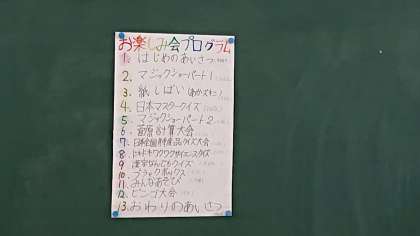 お楽しみ会プログラム
1. はじめのあいさつ
2. マジックショーパート1
3. 紙しばい
4. 日本マスタークイズ
5. マジックショーパート2
6 計算大会
7 クイズ大会
8 ドキドキワクワクサイエンスクイズ
9 漢字なんでもクイズ
10. ブラックボックス
11. みんなあそび
12. ビンゴ大会
13. おわりのあいさつ